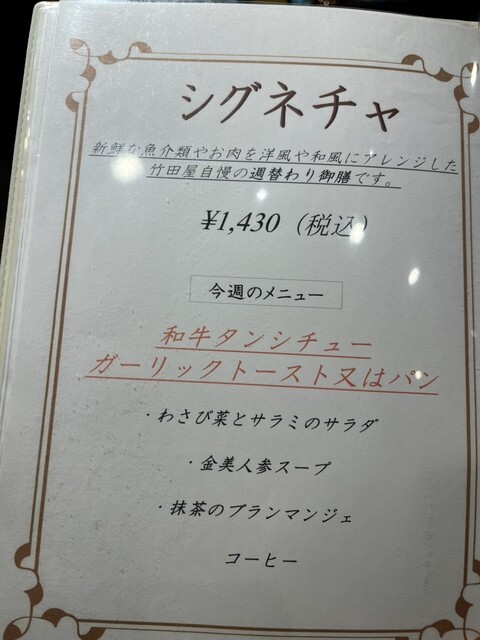 シグネチャ
新鮮な魚介類やお肉を洋風や和風にアレンジした
竹田屋自慢の週替わり御膳です。
¥1,430（税込）
今週のメニュー
和牛タンシチュー
ガーリックトースト又はパン
・わさび菜とサラミのサラダ
・金美人参スープ
・抹茶のブランマンジェ
コーヒー